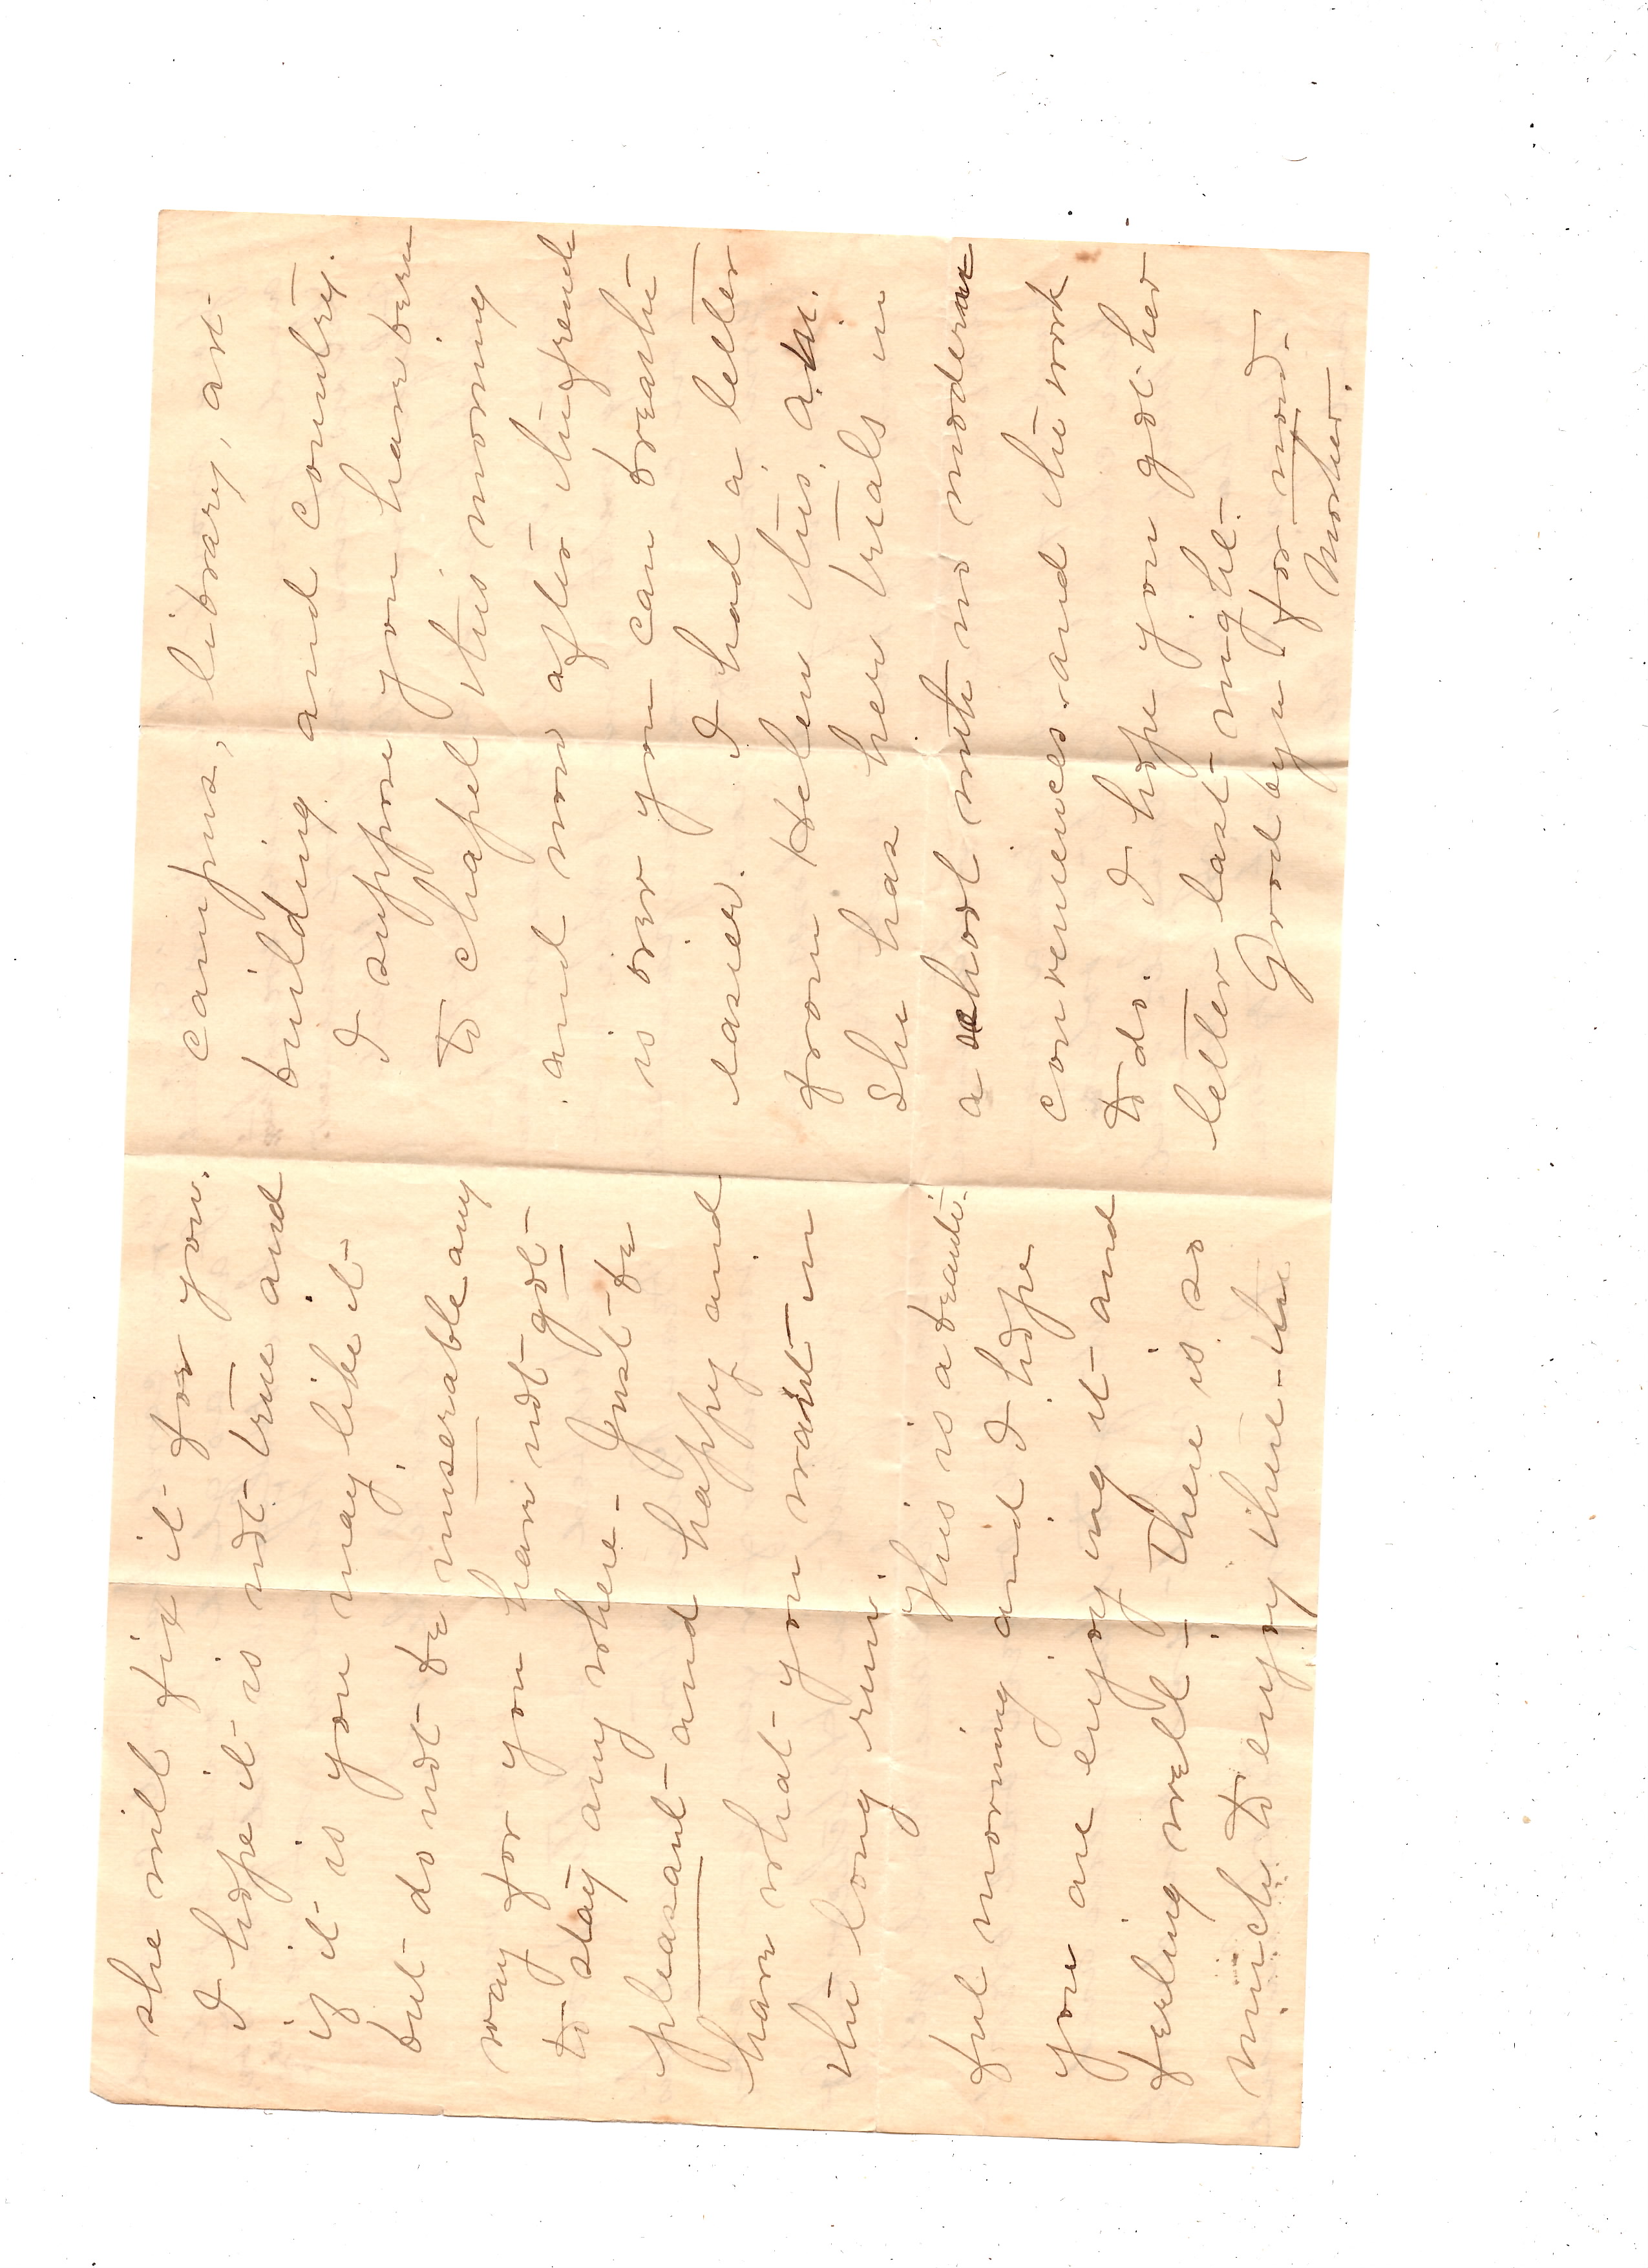 she will fix it for you.
I hope it is not true and
if it is you may like it
but do not be miserable any
way for you have not got
to stay any where - Just be
pleasant and happy and
have what you want in
the long run.
This is a beauti-
ful morning and I hope
you are enjoying it and
feeling well - There is so
much to enjoy there - the
campus, library, art
building and country.
I suppose you have been
to chapel this morning
and now after the
is over you can breathe
easier. I had a letter
from Helen this A.M.
She has her trials in
a school with no modern
conveniences and the work
to do. I hope you got her
letter last night.
Good bye for now.
Mother.